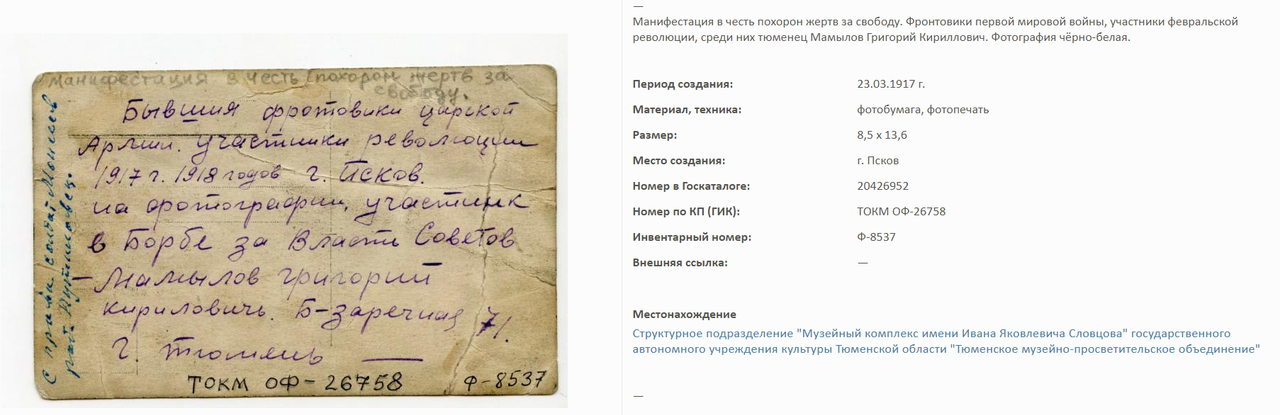 манифестация в честь похорон жертв за
свободу.
Бывшия фротовики царской
Армии. участники революции
1917 г. 1918 годов г. Псков.
на фотографии. участник
в Борбе за Власти Советов
— Мамылов григорий
кириловичь. Б-заречная 71.
г. тюмень —
ТОКМ ОФ-26758 Ф-8537
С права солдат
раб.
—
Манифестация в честь похорон жертв за свободу. Фронтовики первой мировой войны, участники февральской
революции, среди них тюменец Мамылов Григорий Кириллович. Фотография чёрно-белая.
Период создания: 23.03.1917 г.
Материал, техника: фотобумага, фотопечать
Размер: 8,5 x 13,6
Место создания: г. Псков
Номер в Госкаталоге: 20426952
Номер по КП (ГИК): ТОКМ ОФ-26758
Инвентарный номер: Ф-8537
Внешняя ссылка: —
Местонахождение
Структурное подразделение "Музейный комплекс имени Ивана Яковлевича Словцова" государственного
автономного учреждения культуры Тюменской области "Тюменское музейно-просветительское объединение"
—